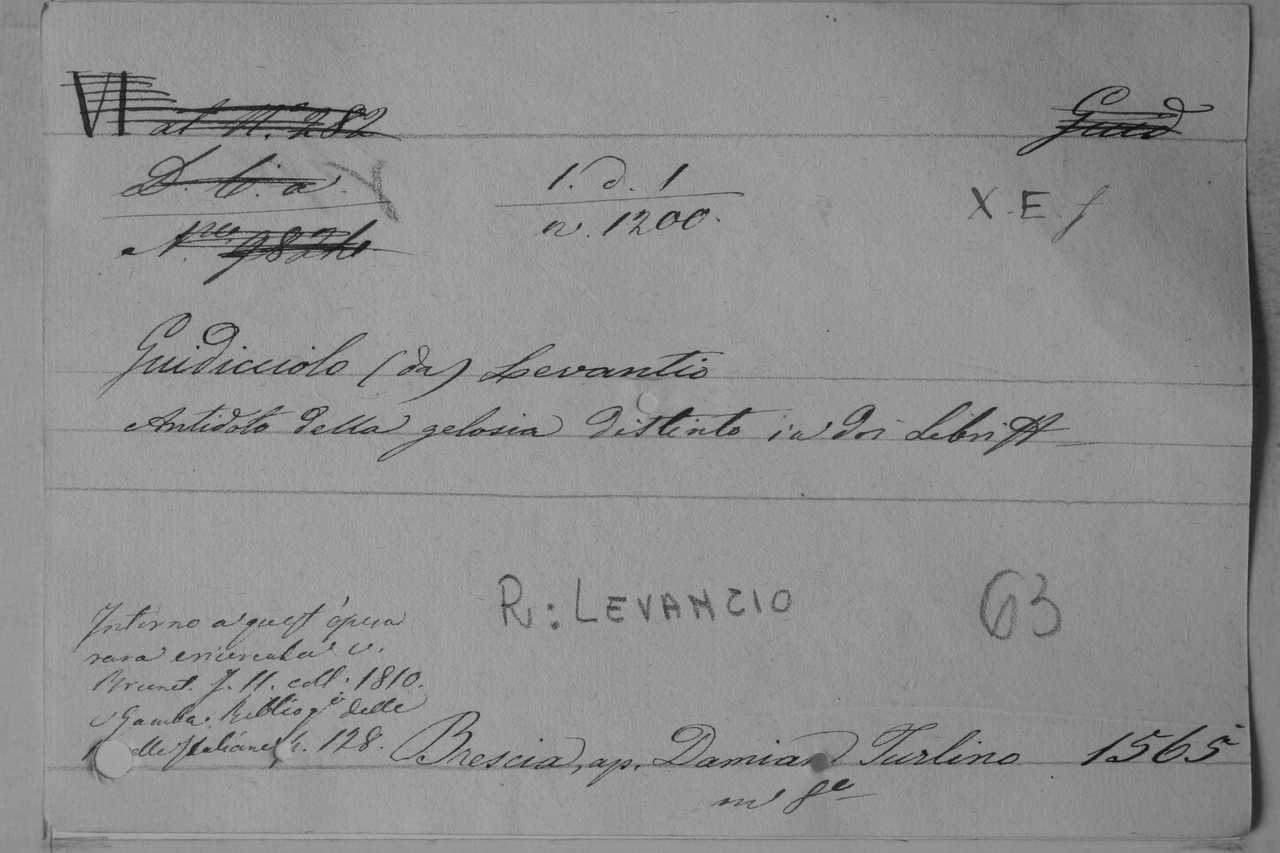 VI al N.º 282
Guid
D. C. a.
N.ro 9824.
1. d. 1
n. 1200.
X. E. f
Guidicciolo (da) Levantio
Antidoto della gelosia distinto in doi Libri
R: LEVANZIO
63
Intorno a quest'opera
rara e ricercata v.
Brunet. T. II. coll. 1810.
e Gamba. Bibliog.ª delle
Novelle Italiane, p. 128.
Brescia, ap. Damian Turlino 1565
in 8º